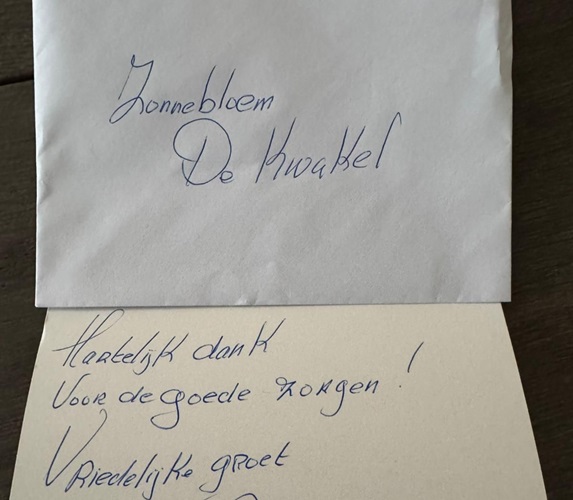 Zonnebloem
De Kwakel
Hartelijk dank
Voor de goede zorgen!
Vriedelijke groet